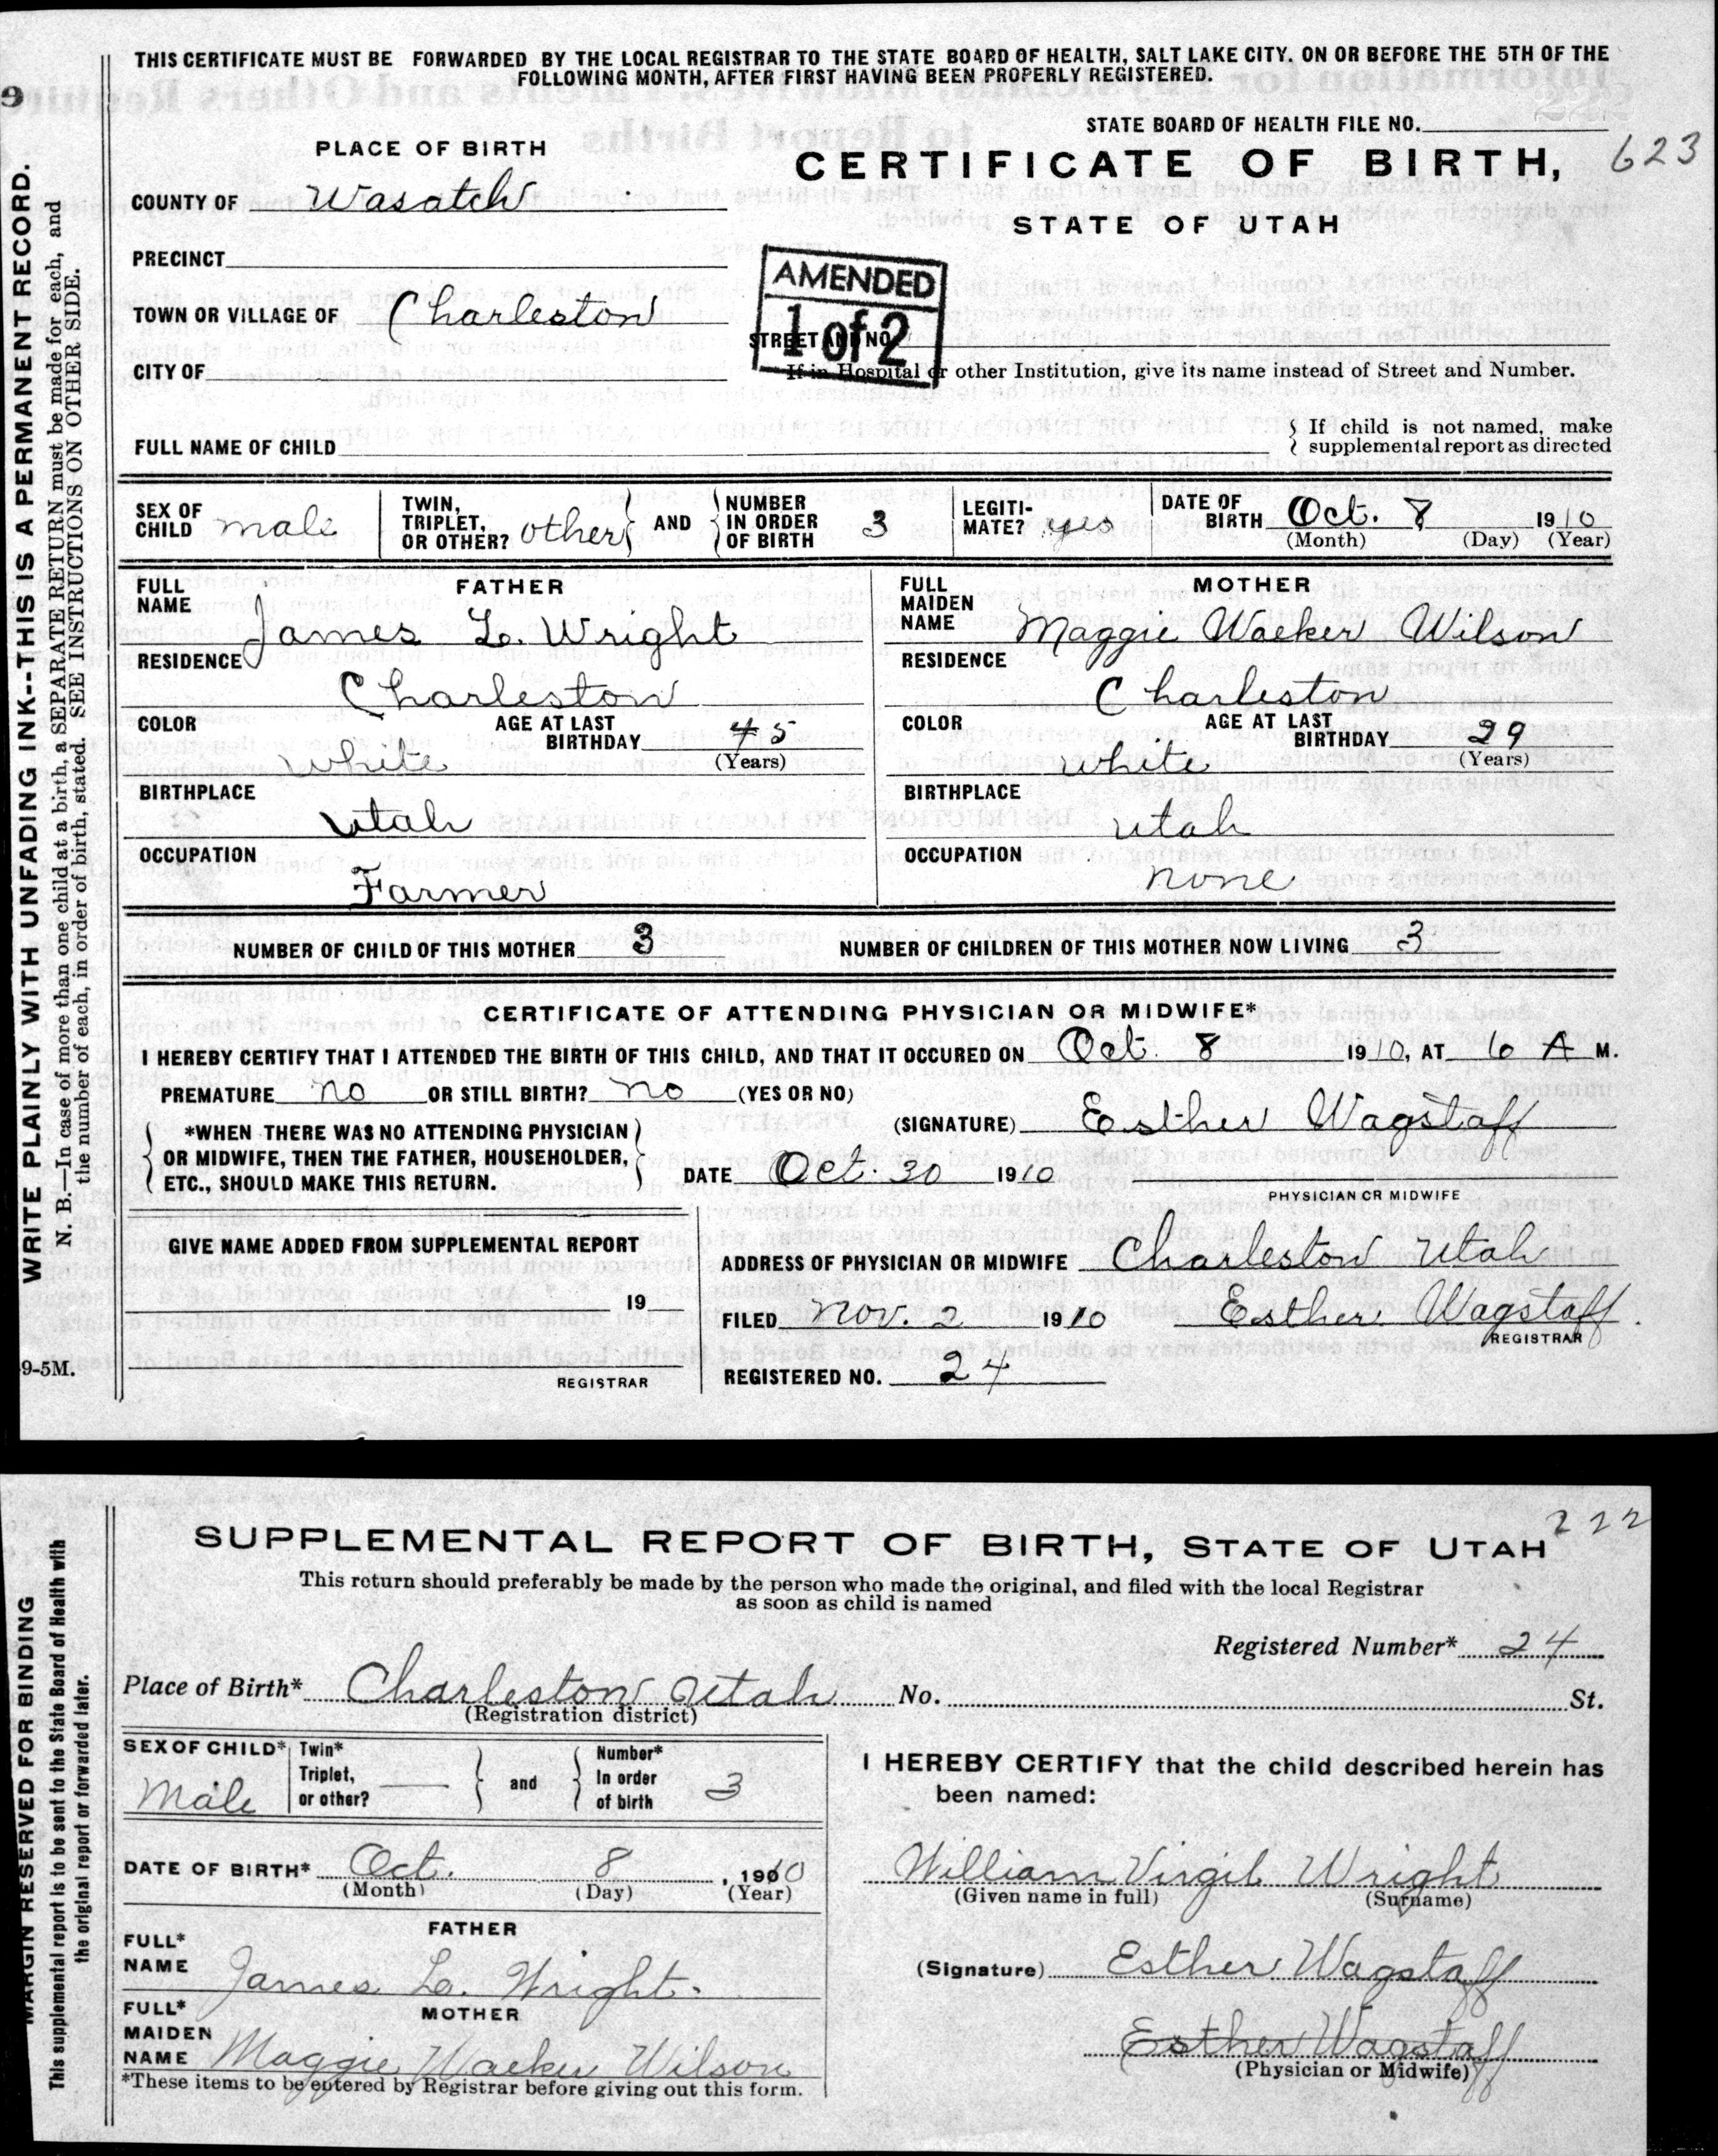 THIS CERTIFICATE MUST BE FORWARDED BY THE LOCAL REGISTRAR TO THE STATE BOARD OF HEALTH, SALT LAKE CITY. ON OR BEFORE THE 5TH OF THE
FOLLOWING MONTH, AFTER FIRST HAVING BEEN PROPERLY REGISTERED.
STATE BOARD OF HEALTH FILE NO.
623
PLACE OF BIRTH
CERTIFICATE OF BIRTH,
COUNTY OF Wasatch
STATE OF UTAH
PRECINCT
AMENDED
1 of 2
TOWN OR VILLAGE OF Charleston
STREET AND NO.
CITY OF
If in Hospital or other Institution, give its name instead of Street and Number.
FULL NAME OF CHILD
If child is not named, make
supplemental report as directed
SEX OF CHILD male
TWIN, TRIPLET, OR OTHER? other AND NUMBER IN ORDER OF BIRTH 3
LEGITIMATE? yes
DATE OF BIRTH Oct. 8 1910
(Month) (Day) (Year)
FATHER
FULL NAME
James L. Wright
RESIDENCE
Charleston
COLOR
white
AGE AT LAST BIRTHDAY 45
(Years)
BIRTHPLACE
Utah
OCCUPATION
Farmer
MOTHER
FULL MAIDEN NAME
Maggie Waeker Wilson
RESIDENCE
Charleston
COLOR
white
AGE AT LAST BIRTHDAY 29
(Years)
BIRTHPLACE
Utah
OCCUPATION
none
NUMBER OF CHILD OF THIS MOTHER 3 NUMBER OF CHILDREN OF THIS MOTHER NOW LIVING 3
CERTIFICATE OF ATTENDING PHYSICIAN OR MIDWIFE*
I HEREBY CERTIFY THAT I ATTENDED THE BIRTH OF THIS CHILD, AND THAT IT OCCURED ON Oct. 8 1910, AT 6 A M.
PREMATURE no OR STILL BIRTH? no (YES OR NO)
*WHEN THERE WAS NO ATTENDING PHYSICIAN
OR MIDWIFE, THEN THE FATHER, HOUSEHOLDER,
ETC., SHOULD MAKE THIS RETURN.
(SIGNATURE) Esther Wagstaff
DATE Oct. 30 1910
PHYSICIAN OR MIDWIFE
GIVE NAME ADDED FROM SUPPLEMENTAL REPORT
19
REGISTRAR
ADDRESS OF PHYSICIAN OR MIDWIFE Charleston Utah
FILED Nov. 2 1910 Esther Wagstaff
REGISTRAR
REGISTERED NO. 24
WRITE PLAINLY WITH UNFADING INK--THIS IS A PERMANENT RECORD.
N. B.—In case of more than one child at a birth, a SEPARATE RETURN must be made for each, and
the number of each, in order of birth, stated. SEE INSTRUCTIONS ON OTHER SIDE.
9-5M.
222
SUPPLEMENTAL REPORT OF BIRTH, STATE OF UTAH
This return should preferably be made by the person who made the original, and filed with the local Registrar
as soon as child is named
Registered Number* 24
Place of Birth* Charleston Utah No. St.
(Registration district)
SEX OF CHILD* Male
Twin* Triplet, or other? and Number* In order of birth 3
DATE OF BIRTH* Oct. 8, 1910
(Month) (Day) (Year)
FATHER
FULL* NAME James L. Wright.
MOTHER
FULL* MAIDEN NAME Maggie Waeker Wilson
*These items to be entered by Registrar before giving out this form.
I HEREBY CERTIFY that the child described herein has
been named:
William Virgil Wright
(Given name in full) (Surname)
(Signature) Esther Wagstaff
Esther Wagstaff
(Physician or Midwife)
MARGIN RESERVED FOR BINDING
This supplemental report is to be sent to the State Board of Health with
the original report or forwarded later.